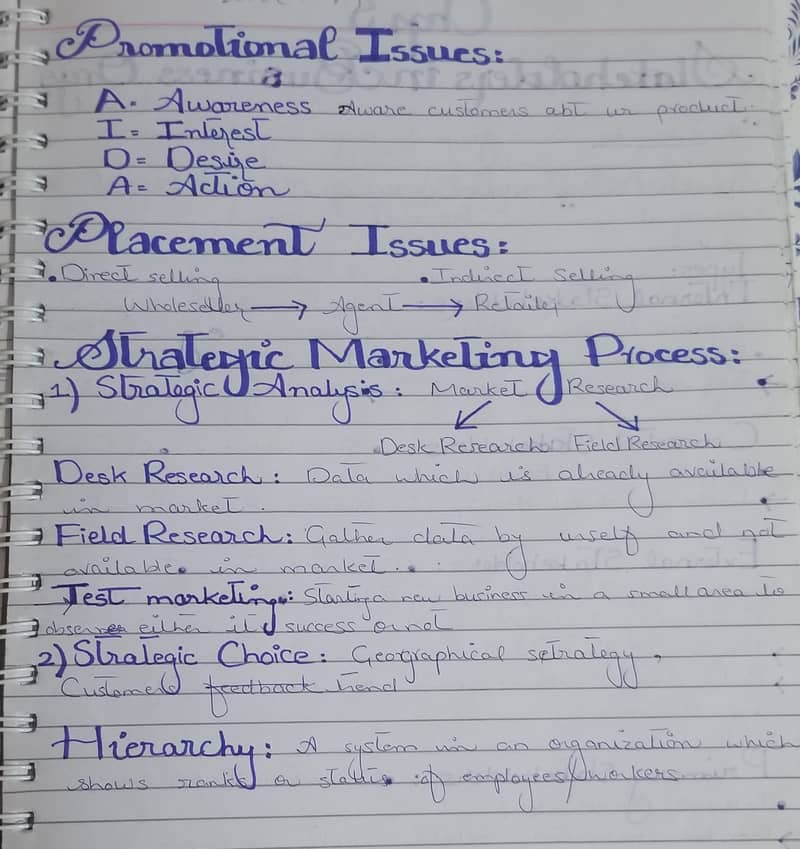 Promotional Issues:
A. Awareness Aware customers abt ur product.
I = Interest
D = Desire
A = Action
Placement Issues:
. Direct selling . Indirect Selling
Wholeseller → Agent → Retailer
Strategic Marketing Process:
1) Strategic Analysis: Market Research
Desk Research. Field Research
Desk Research: Data which is already available
in market.
Field Research: Gather data by urself and not
available in market.
Test marketing: Starting a new business in a small area to
observe either it success or not
2) Strategic Choice: Geographical setrategy,
Customer feedback trend
Hierarchy: A system in an organization which
shows rank or status of employees/workers